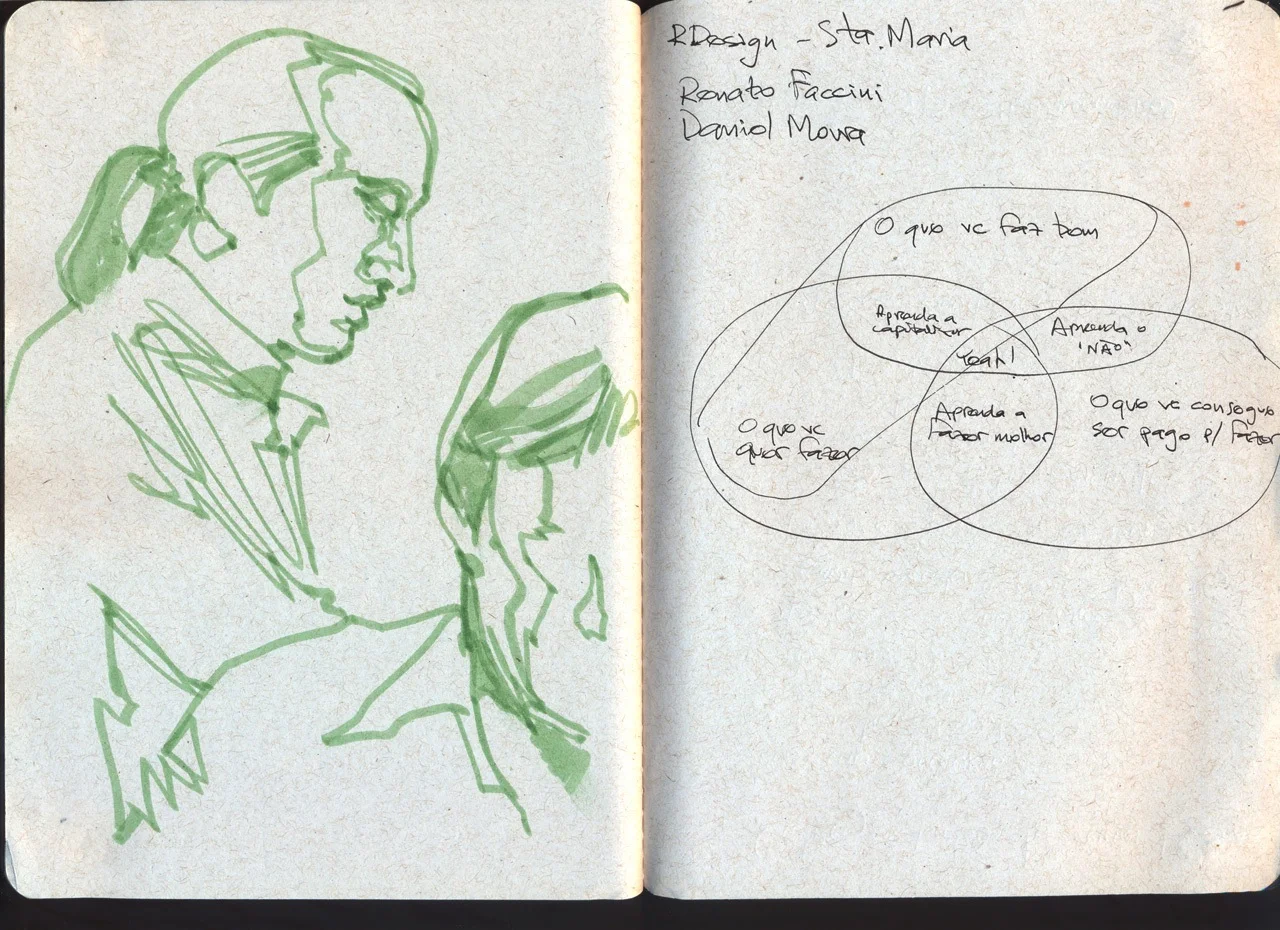 RDesign - Sta. Maria
Renato Faccini
Daniel Moura
O que vc faz bem
Aprenda a
capitalizar
Aprenda o
"NÃO"
Yeah!
O que vc
quer fazer
Aprenda a
fazer melhor
O que vc consegue
ser pago p/ fazer